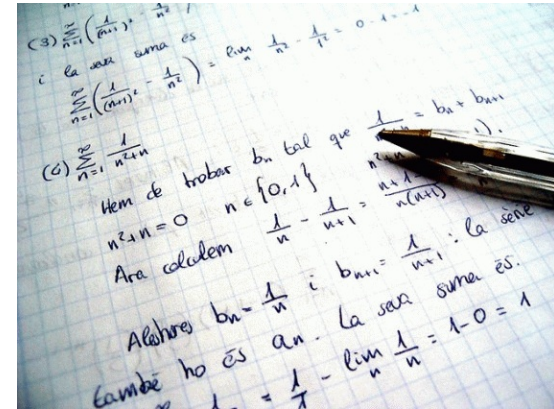 (3) ∑_{n=1}^{∞} (1/(n+1)² - 1/n²)
i la seva suma és
∑_{n=1}^{∞} (1/(n+1)² - 1/n²) = lim_n 1/n² - 1/1² = 0 - 1 = -1
(4) ∑_{n=1}^{∞} 1/(n²+n)
Hem de trobar bn tal que 1/ = bn + bn+1
n²+n = 0 n ∈ {0,1}
Ara calculem 1/n - 1/(n+1) = n+1- /n(n+1)
Aleshores bn = 1/n i bn+1 = 1/(n+1) : la sèrie
també ho és an. La seva suma és:
1/1 - lim_n 1/n = 1-0 = 1